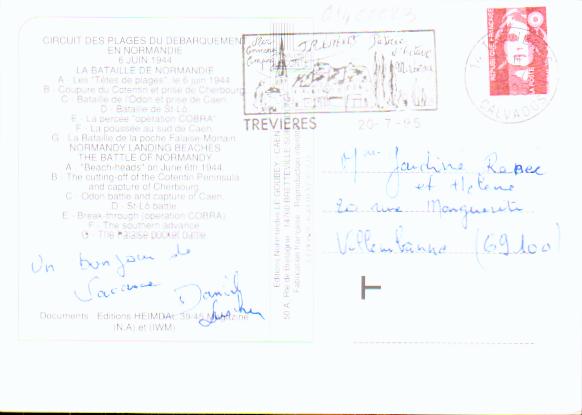 CIRCUIT DES PLAGES DU DEBARQUEMENT
EN NORMANDIE
6 JUIN 1944
LA BATAILLE DE NORMANDIE
A - Les "Têtes de plages", le 6 juin 1944
B - Coupure du Cotentin et prise de Cherbourg
C - Bataille de l'Odon et prise de Caen
D - Bataille de St-Lô
E - La percée "opération COBRA"
F - La poussée au sud de Caen
G - La Bataille de la poche Falaise-Mortain
NORMANDY LANDING BEACHES
THE BATTLE OF NORMANDY
A - "Beach-heads" on June 6th 1944
B - The cutting-off of the Cotentin Peninsula
and capture of Cherbourg
C - Odon battle and capture of Caen
D - St-Lô battle
E - Break-through (opération COBRA)
F - The southern advance
G - The Falaise pocket battle
Un bonjour de
Vacance
Documents : Editions HEIMDAL 39-45 Magazine
(N.A) et (IWM)
Editions Normandes LE GOUBEY - CAEN
TREVIERES
20-7-95
CALVADOS
Mme
et Hélène
20 rue
Villeurbanne (69100)
T